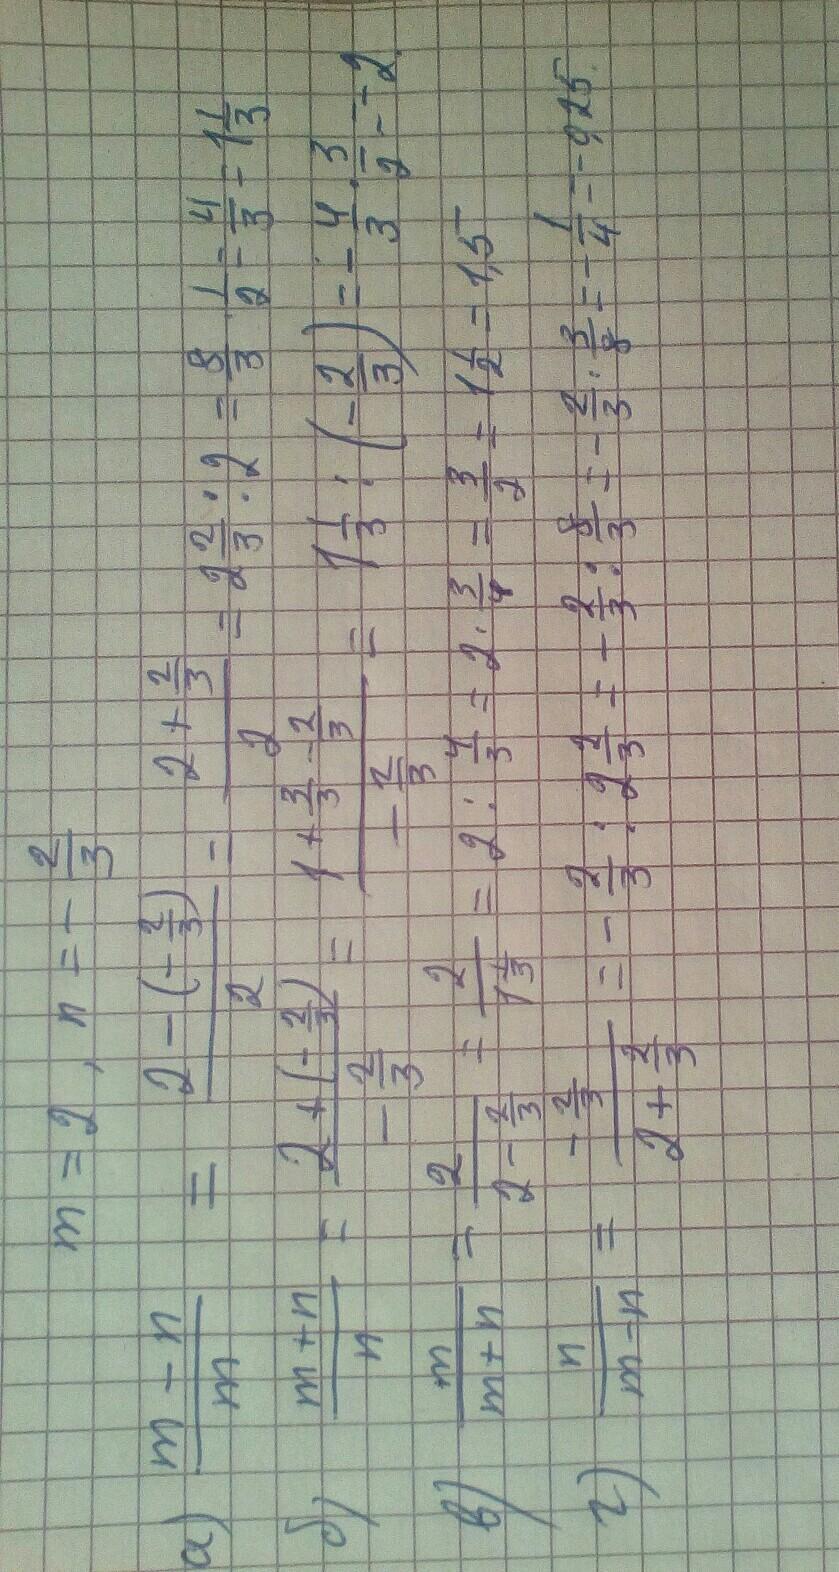 m = 2, n = - 2/3
а) (m - n)/m = (2 - (-2/3))/2 = (2 + 2/3)/2 = 2 2/3 : 2 = 8/3 · 1/2 = 4/3 = 1 1/3
б) (m + n)/n = (2 + (-2/3))/(- 2/3) = (1 + 3/3 - 2/3)/(- 2/3) = 1 1/3 : (- 2/3) = - 4/3 · 3/2 = -2.
в) m/(m + n) = 2/(2 - 2/3) = 2/(1 1/3) = 2 : 4/3 = 2 · 3/4 = 3/2 = 1 1/2 = 1,5
г) n/(m - n) = (- 2/3)/(2 + 2/3) = - 2/3 : 2 2/3 = - 2/3 : 8/3 = - 2/3 · 3/8 = - 1/4 = - 0,25.